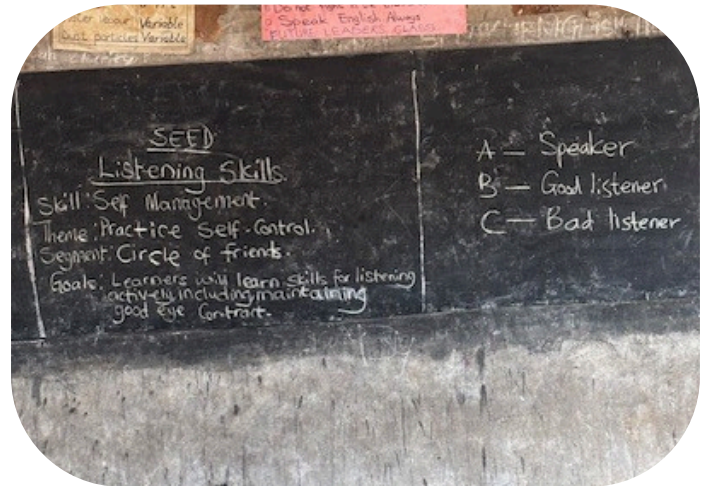 Water vapour Variable
Dust particles Variable
Speak English Always
FUTURE LEADERS CLASS
SEED
Listening Skills.
Skill: Self Management.
Theme: Practice Self-Control.
Segment: Circle of friends.
Goals: Learners will learn skills for listening
actively including maintaining
good eye Contract.
A — Speaker
B — Good listener
C — Bad listener